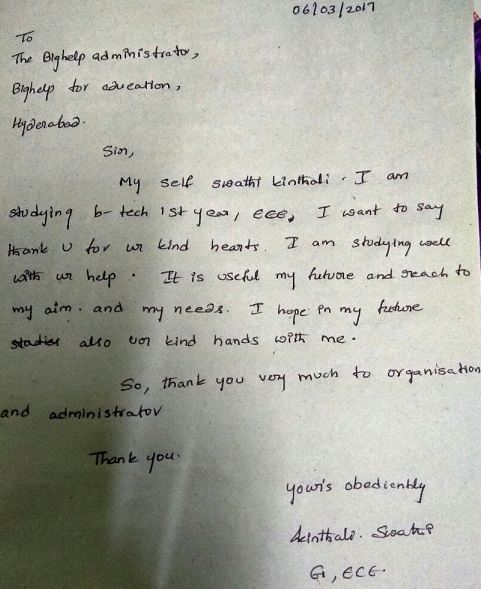 06/03/2017
To
The Bighelp administrator,
Bighelp for education,
Hyderabad.
Sir,
My self swathi kinthali. I am
studying b-tech 1st year, ece, I want to say
thank u for ur kind hearts. I am studying well
with ur help. It is useful my future and reach to
my aim. and my needs. I hope in my future
studies also ur kind hands with me.
So, thank you very much to organisation
and administrator
Thank you.
your's obediently
kinthali. Swathi
G1, ECE.